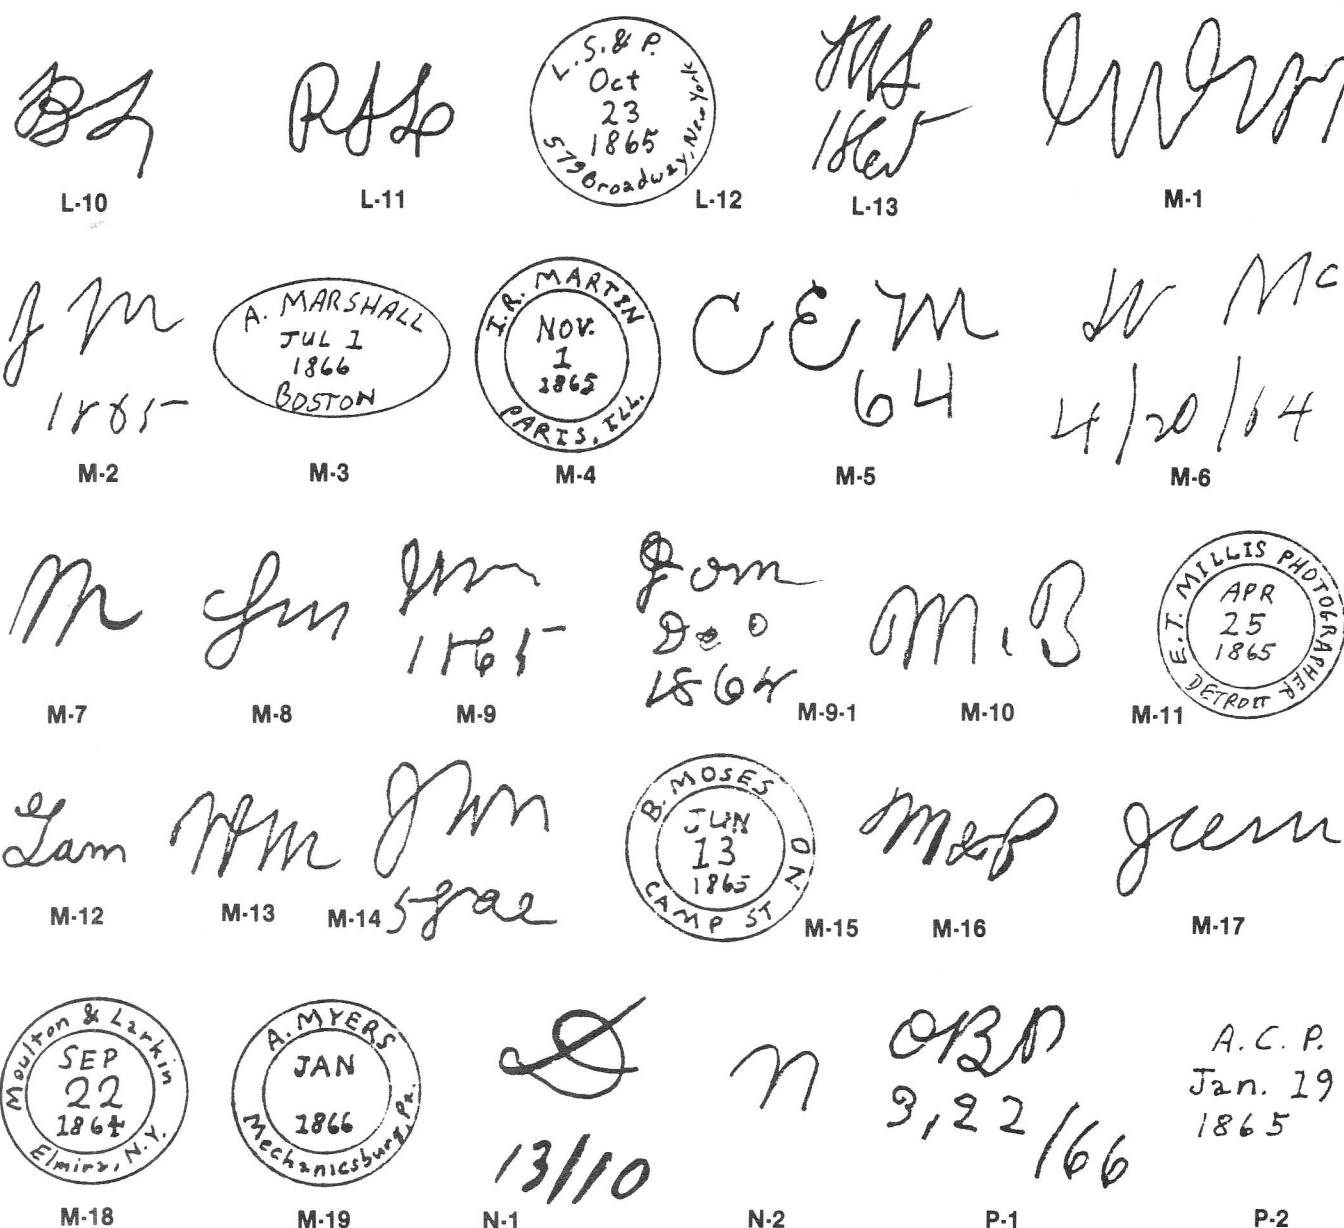 BL
L-10
RHL
L-11
L. S. & P.
Oct
23
1865
579 Broadway, New York
L-12
1865
L-13
M-1
J M
1865
M-2
A. MARSHALL
JUL 1
1866
BOSTON
M-3
I.R. MARTIN
NOV.
1
1865
PARIS, ILL.
M-4
C E M
64
M-5
W Mc
4/20/64
M-6
M
M-7
M-8
Jm
1865
M-9
Jom
1864
M-9-1
M. B
M-10
E.T. MILLIS PHOTOGRAPHER
APR
25
1865
DETROIT
M-11
M-12
M-13
M-14
B. MOSES
JUN
13
1865
CAMP ST NO
M-15
M&B
M-16
M-17
Moulton & Larkin
SEP
22
1864
Elmira, N.Y.
M-18
A. MYERS
JAN
1866
Mechanicsburg, Pa.
M-19
13/10
N-1
n
N-2
OBP
3,22/66
P-1
A. C. P.
Jan. 19
1865
P-2